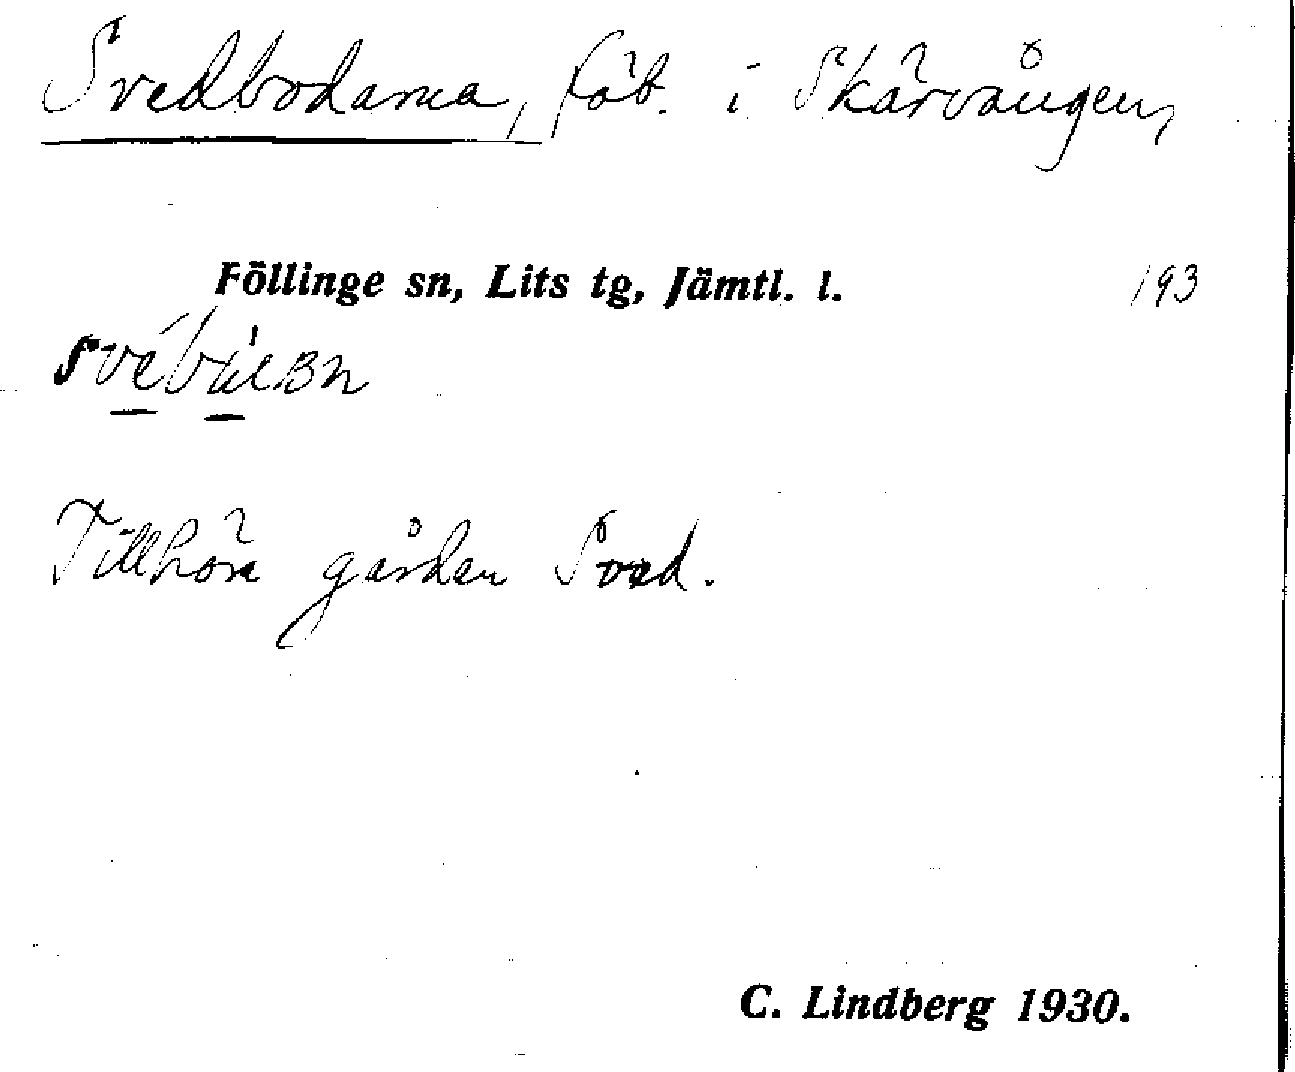 Svedbodarna, fäb. i Skärvången,
Föllinge sn, Lits tg, Jämtl. l. 193
Tillhör gården Sved.
C. Lindberg 1930.